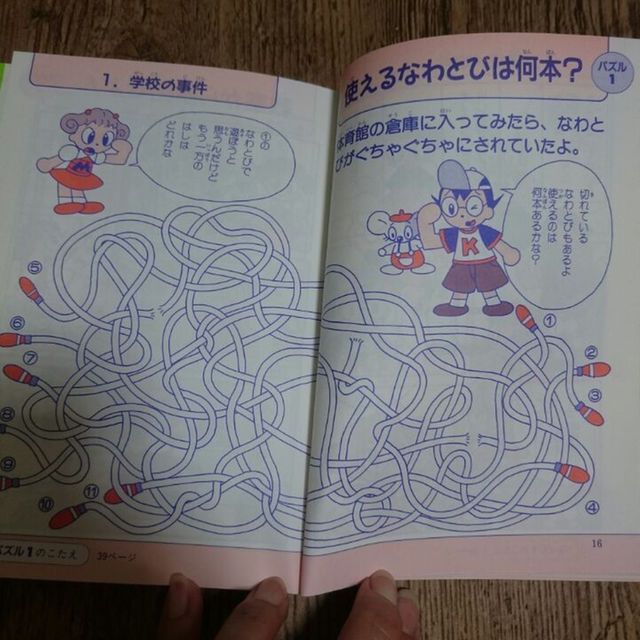 使えるなわとびは何本?
パズル
1
体育館の倉庫に入ってみたら、なわと
びがぐちゃぐちゃにされていたよ。
切れている
なわとびもあるよ
使えるのは
何本あるかな?
K
①
②
③
④
16
1. 学校の事件
①の
なわとびで
遊ぼうと
思うんだけど
もう一方の
はしは
どれかな
M
⑤
⑥
⑦
⑧
⑨
⑩
⑪
パズル1のこたえ
39ページ